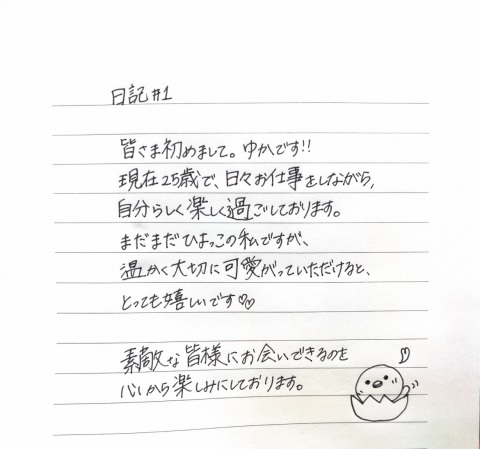 日記#1
皆さま初めまして。ゆかです!!
現在25歳で、日々お仕事をしながら,
自分らしく楽しく過ごしております。
まだまだひよっこの私ですが、
温かく大切に可愛がっていただけると、
とっても嬉しいです♡♡
素敵な皆様にお会いできるのを
心から楽しみにしております。